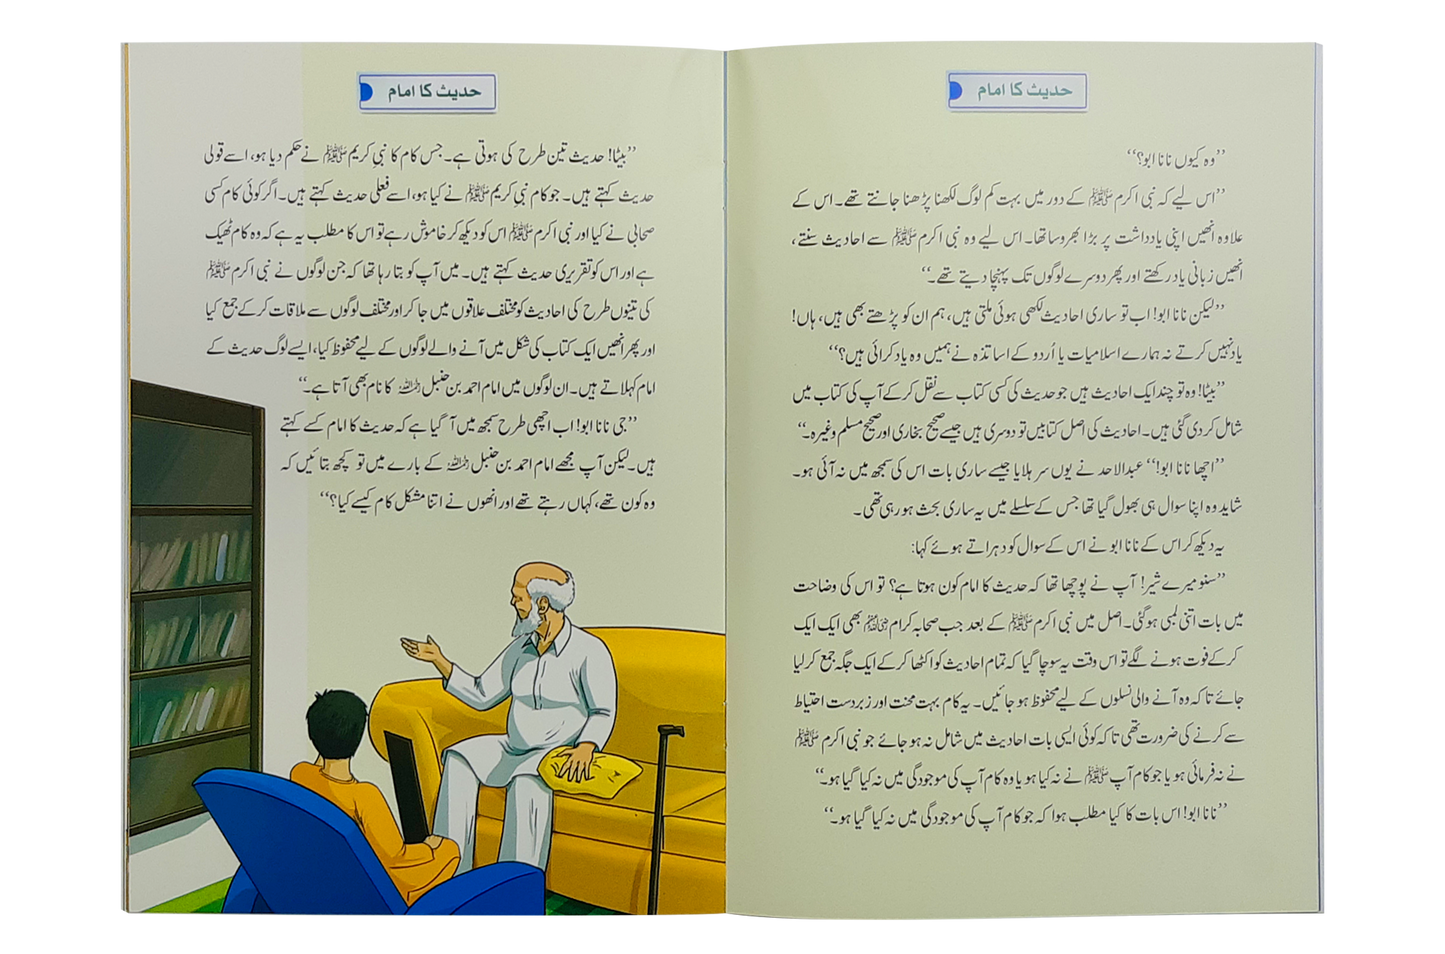 حدیث کا امام
’’وہ کیوں نانا ابو؟‘‘
’’اس لیے کہ نبی اکرم ﷺ کے دور میں بہت کم لوگ لکھنا پڑھنا جانتے تھے۔ اس کے
علاوہ انھیں اپنی یادداشت پر بڑا بھروسا تھا۔ اس لیے وہ نبی اکرم ﷺ سے احادیث سنتے،
انھیں زبانی یاد رکھتے اور پھر دوسرے لوگوں تک پہنچا دیتے تھے۔‘‘
’’لیکن نانا ابو! اب تو ساری احادیث لکھی ہوئی ملتی ہیں، ہم ان کو پڑھتے بھی ہیں، ہاں!
یاد نہیں کرتے نہ ہمارے اسلامیات یا اُردو کے اساتذہ نے ہمیں وہ یاد کرائی ہیں؟‘‘
’’بیٹا! وہ تو چند ایک احادیث ہیں جو حدیث کی کسی کتاب سے نقل کر کے آپ کی کتاب میں
شامل کر دی گئی ہیں۔ احادیث کی اصل کتابیں تو دوسری ہیں جیسے صحیح بخاری اور صحیح مسلم وغیرہ۔‘‘
’’اچھا نانا ابو!‘‘ عبدالاحد نے یوں سر ہلایا جیسے ساری بات اس کی سمجھ میں نہ آئی ہو۔
شاید وہ اپنا سوال ہی بھول گیا تھا جس کے سلسلے میں یہ ساری بحث ہو رہی تھی۔
یہ دیکھ کر اس کے نانا ابو نے اس کے سوال کو دہراتے ہوئے کہا:
’’سنو میرے شیر! آپ نے پوچھا تھا کہ حدیث کا امام کون ہوتا ہے؟ تو اس کی وضاحت
میں بات اتنی لمبی ہو گئی۔ اصل میں نبی اکرم ﷺ کے بعد جب صحابہ کرام رضی اللہ عنہم بھی ایک ایک
کر کے فوت ہونے لگے تو اس وقت یہ سوچا گیا کہ تمام احادیث کو اکٹھا کر کے ایک جگہ جمع کر لیا
جائے تاکہ وہ آنے والی نسلوں کے لیے محفوظ ہو جائیں۔ یہ کام بہت محنت اور زبردست احتیاط
سے کرنے کی ضرورت تھی تاکہ کوئی ایسی بات احادیث میں شامل نہ ہو جائے جو نبی اکرم ﷺ
نے نہ فرمائی ہو یا جو کام آپ ﷺ نے نہ کیا ہو یا وہ کام آپ کی موجودگی میں نہ کیا گیا ہو۔‘‘
’’نانا ابو! اس بات کا کیا مطلب ہوا کہ جو کام آپ کی موجودگی میں نہ کیا گیا ہو۔‘‘
حدیث کا امام
’’بیٹا! حدیث تین طرح کی ہوتی ہے۔ جس کام کا نبی کریم ﷺ نے حکم دیا ہو، اسے قولی
حدیث کہتے ہیں۔ جو کام نبی کریم ﷺ نے کیا ہو، اسے فعلی حدیث کہتے ہیں۔ اگر کوئی کام کسی
صحابی نے کیا اور نبی اکرم ﷺ اس کو دیکھ کر خاموش رہے تو اس کا مطلب یہ ہے کہ وہ کام ٹھیک
ہے اور اس کو تقریری حدیث کہتے ہیں۔ میں آپ کو بتا رہا تھا کہ جن لوگوں نے نبی اکرم ﷺ
کی تینوں طرح کی احادیث کو مختلف علاقوں میں جا کر اور مختلف لوگوں سے ملاقات کر کے جمع کیا
اور پھر انھیں ایک کتاب کی شکل میں آنے والے لوگوں کے لیے محفوظ کیا، ایسے لوگ حدیث کے
امام کہلاتے ہیں۔ ان لوگوں میں امام احمد بن حنبل رحمہ اللہ کا نام بھی آتا ہے۔‘‘
’’جی نانا ابو! اب اچھی طرح سمجھ میں آ گیا ہے کہ حدیث کا امام کسے کہتے
ہیں۔ لیکن آپ مجھے امام احمد بن حنبل رحمہ اللہ کے بارے میں تو کچھ بتائیں کہ
وہ کون تھے، کہاں رہتے تھے اور انھوں نے اتنا مشکل کام کیسے کیا؟‘‘